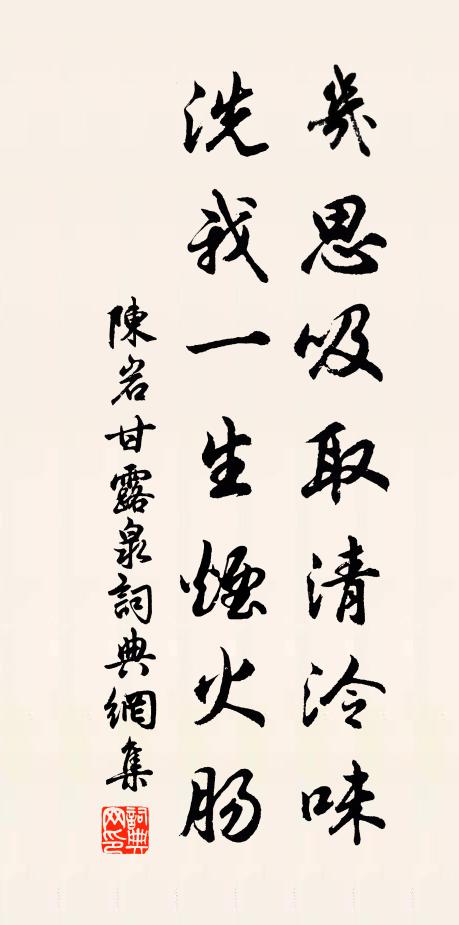 幾思吸取清泠味
洗我一生煙火腸
陳岩甘露泉詞典網集
詞典網印